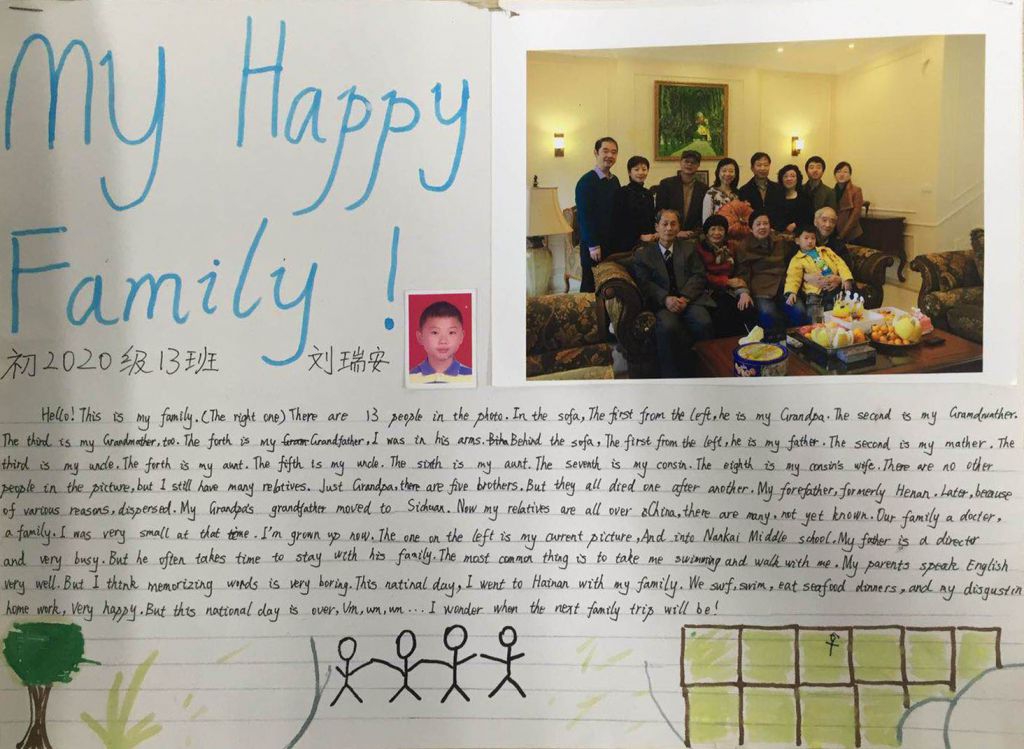 My Happy
Family !
初2020级13班 刘瑞安
Hello! This is my family. (The right one) There are 13 people in the photo. In the sofa, The first from the left, he is my Grandpa. The second is my Gramdmnther.
The third is my Grandmother, too. The forth is my Grandfather, I was in his arms. Behind the sofa, The first from the left, he is my father. The second is my mather. The
third is my uncle. The forth is my aunt. The fifth is my uncle. The sixth is my aunt. The seventh is my consin. The eighth is my consin's wife. There are no other
people in the picture, but I still have many reltives. Just Grandpa, there are five brothers. But they all died one after another. My forefather, formerly Henan. Later, because
of various reasons, dispersed. My Grandpa's grandfather moved to Sichuan. Now my relatives are all over China, there are many, not yet known. Our family a doctor,
a family. I was very small at that time. I'm grown up now. The one on the left is my current picture, And into Nankai Middle school. My father is a director
and very busy. But he often takes time to stay with his family. The most common thing is to take me swimming and walk with me. My parents speak English
very well. But I think memorizing words is very boring. This natinal day, I went to Hainan with my family. We surf, swim, eat seafood dinners, and my disgustin
home work, Very happy. But this national day is over, Um, um, um ... I wonder when the next family trip will be!